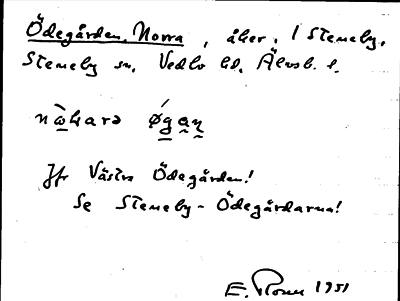 Ödegården, Norra, åker. 1 Steneby.
Steneby sn. Vedbo hd. Älvsb. l.
nωhara øgan
Jfr Västra Ödegården!
Se Steneby-Ödegårdarna!
E. 1951